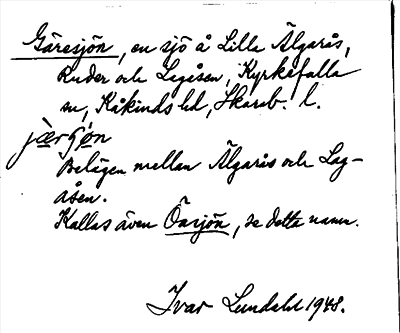 Gäresjön, en sjö å Lilla Älgarås,
Ruder och Lagåsen, Kyrkefalla
sn, Kåkinds hd, Skarab. l.
jærʃön
Belägen mellan Älgarås och Lag-
åsen.
Kallas även Önsjön, se detta namn.
Ivar Lundahl 1948.